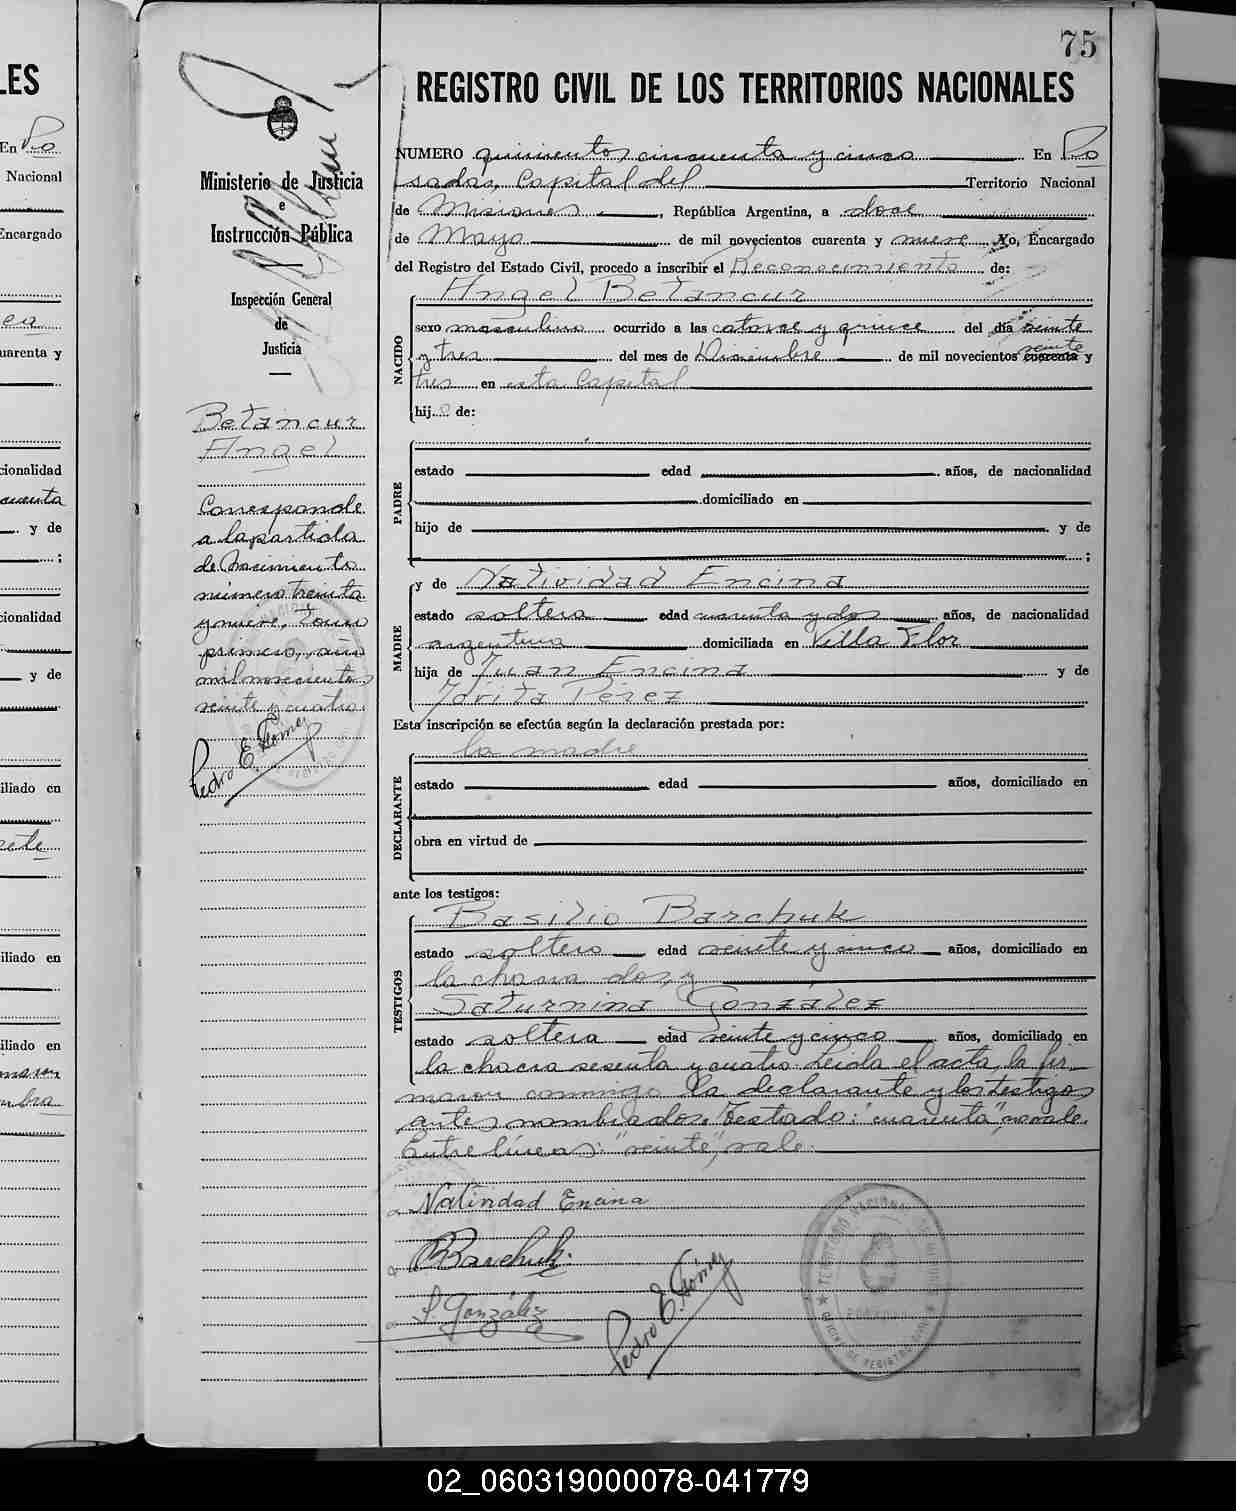 75
REGISTRO CIVIL DE LOS TERRITORIOS NACIONALES
NUMERO quinientos cincuenta y cinco En Po
sadas, Capital del Territorio Nacional
de Misiones, República Argentina, a doce
de Mayo de mil novecientos cuarenta y nueve Yo, Encargado
del Registro del Estado Civil, procedo a inscribir el Reconocimiento de:
NACIDO
Angel Betancur
sexo masculino ocurrido a las catorce y quince del día veinte
y tres del mes de Diciembre de mil novecientos cuarenta veinte y
tres en esta Capital
hijo de:
PADRE
estado edad años, de nacionalidad
domiciliado en
hijo de y de
;
MADRE
y de Natividad Encina
estado soltera edad cuarenta y dos años, de nacionalidad
argentina domiciliada en Villa Flor
hija de Juan Encina y de
Jovita Perez
Esta inscripción se efectúa según la declaración prestada por:
DECLARANTE
la madre
estado edad años, domiciliado en
obra en virtud de
ante los testigos:
TESTIGOS
Basilio Barchuk
estado soltero edad veinte y cinco años, domiciliado en
la chacra dos, y
Saturnina González
estado soltera edad veinte y cinco años, domiciliado en
la chacra sesenta y cuatro. Leida el acta, la fir
maron conmigo la declarante y los testigos
antes nombrados. Testado: "cuarenta", no vale.
Entre líneas: "veinte", vale.
Natividad Encina
BBarchuk.
S. González
Pedro E. Gómez
TERRITORIO NACIONAL DE MISIONES
POSADAS
OFICINA DE REGISTRO CIVIL
Ministerio de Justicia
e
Instrucción Pública
Inspección General
de
Justicia
Betancur
Angel
Corresponde
a la partida
de Nacimiento
número treinta
y nueve, tomo
primero, año
mil novecientos
veinte y cuatro.
Pedro E. Gómez
LES
En Po
Nacional
Encargado
uarenta y
cionalidad
cuenta
y de
;
cionalidad
y de
iliado en
iliado en
iliado en
02_060319000078-041779